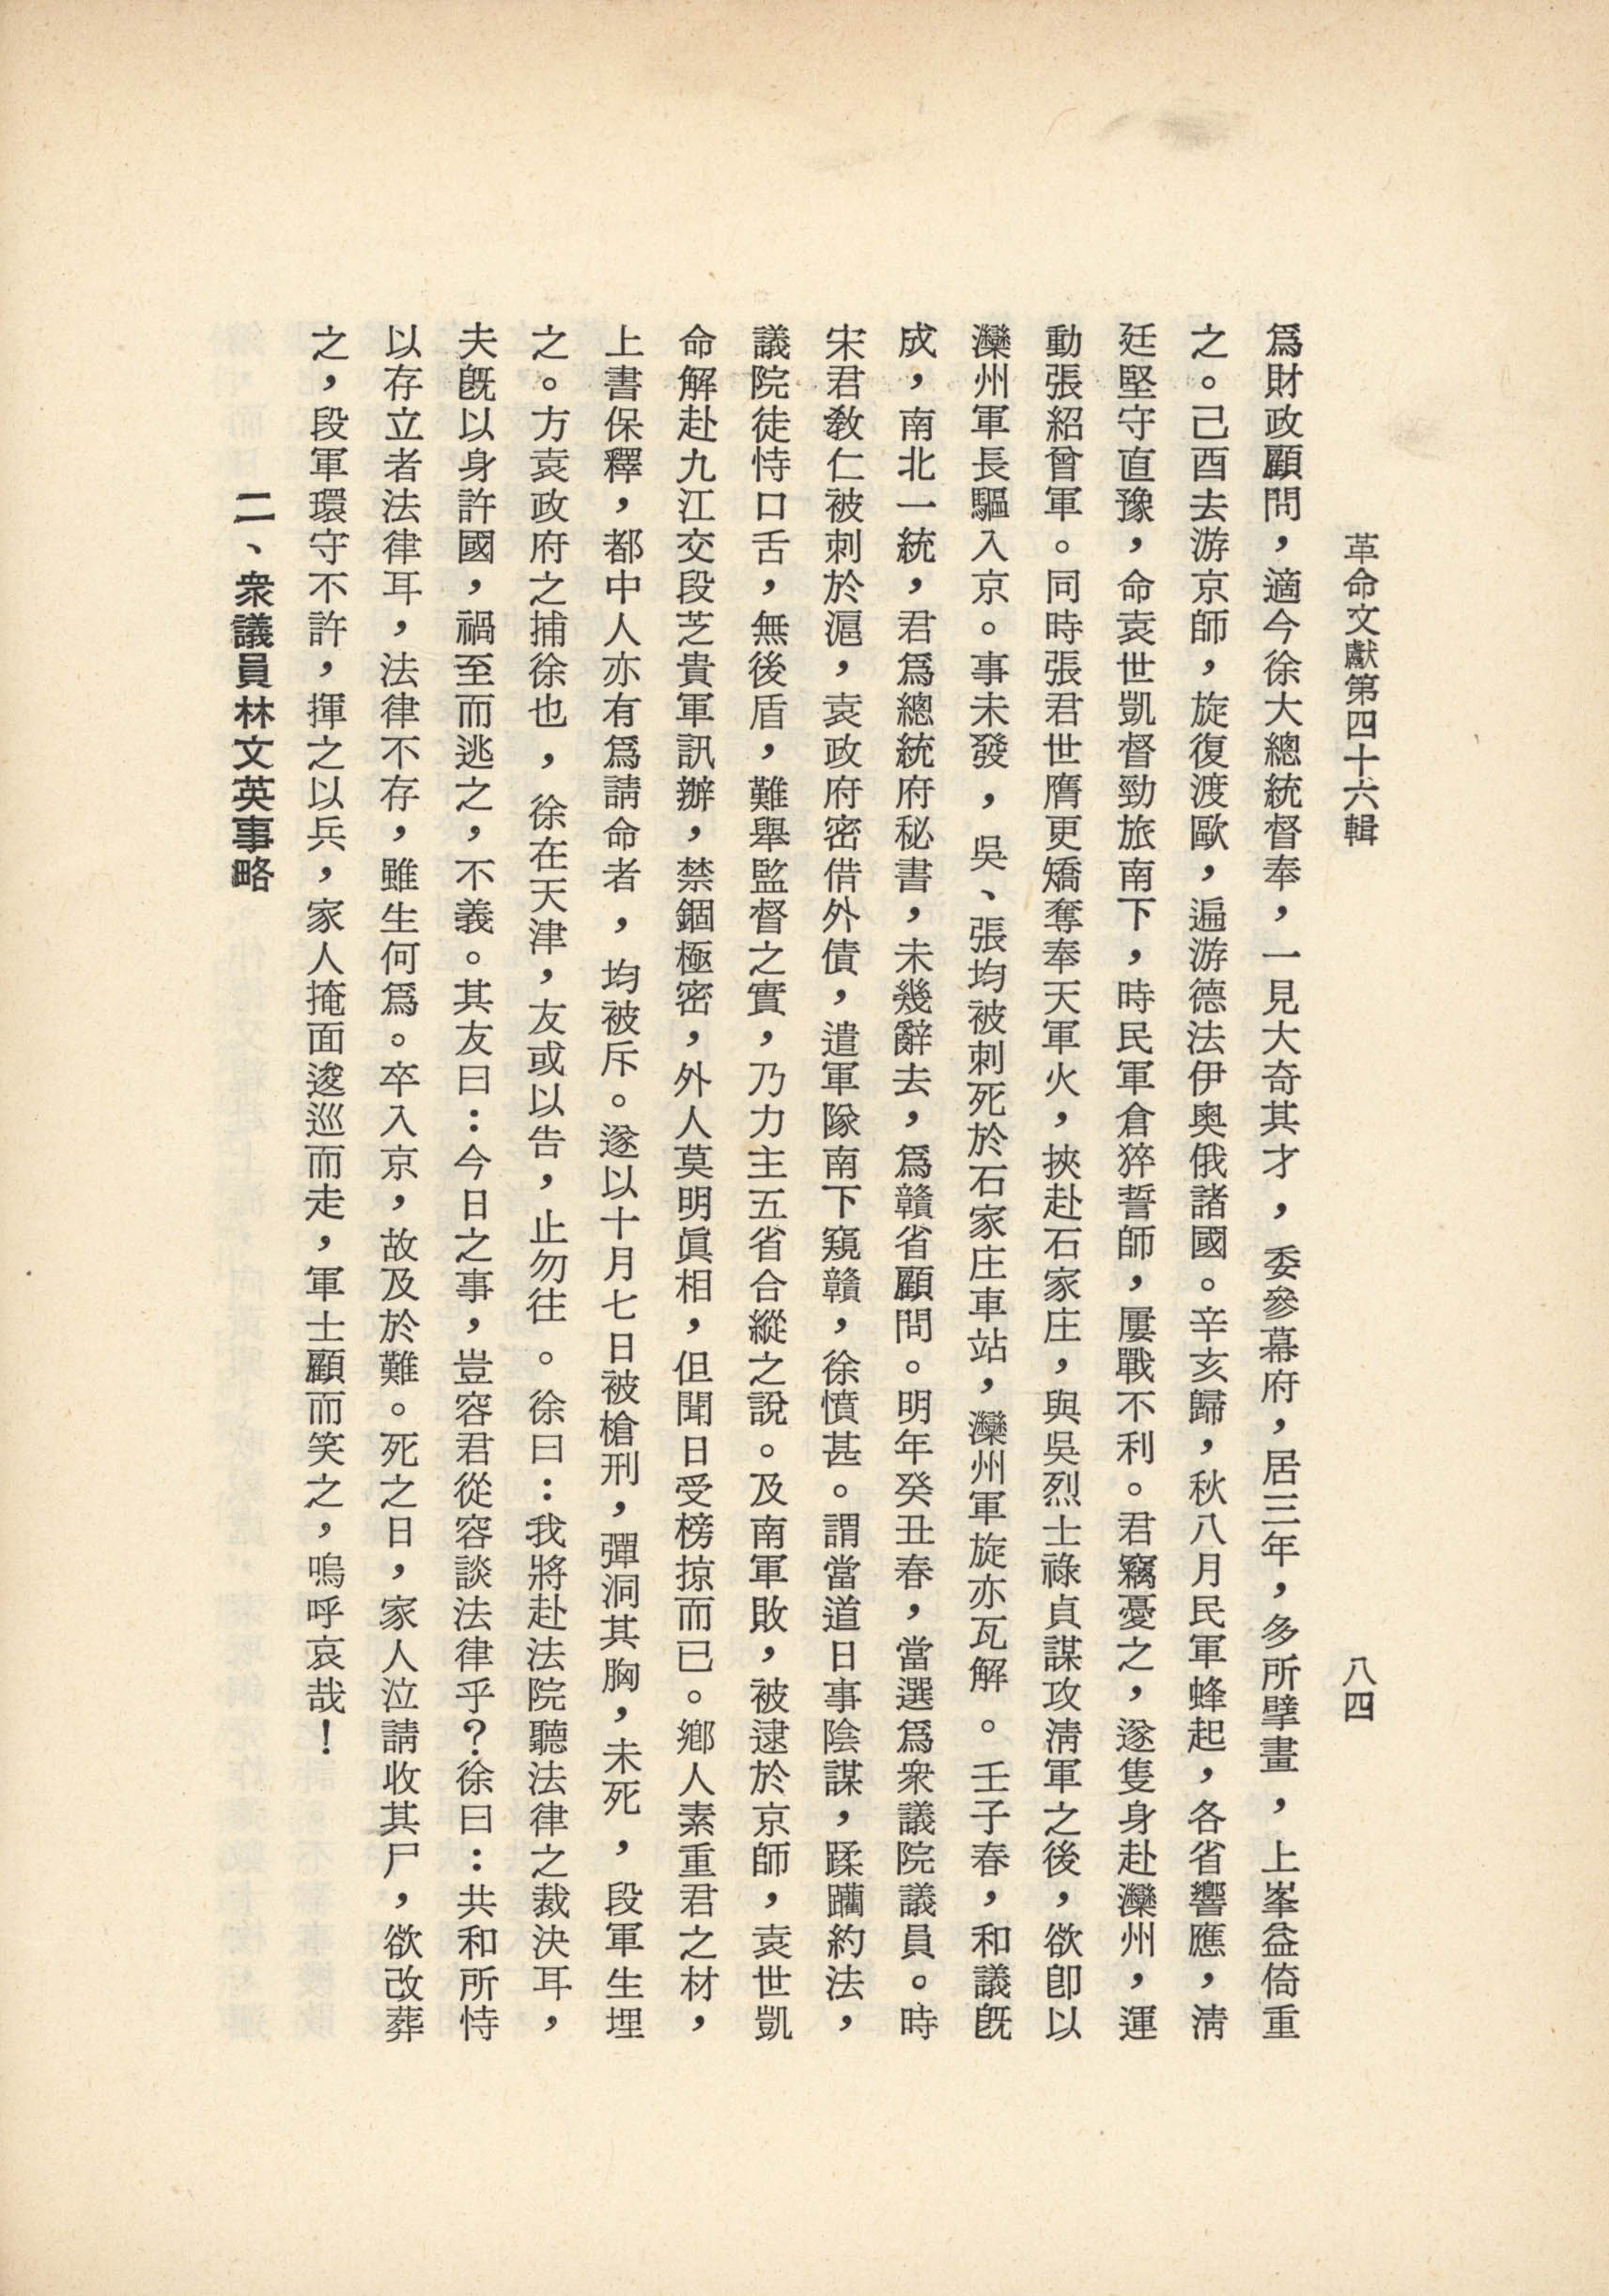 革命文獻第四十六輯
八四
爲財政顧問，適今徐大總統督奉，一見大奇其才，委參幕府，居三年，多所擘畫，上峯益倚重
之。己酉去游京師，旋復渡歐，遍游德法伊奧俄諸國。辛亥歸，秋八月民軍蜂起，各省響應，淸
廷堅守直豫，命袁世凱督勁旅南下，時民軍倉猝誓師，屢戰不利。君竊憂之，遂隻身赴灤州，運
動張紹曾軍。同時張君世膺更矯奪奉天軍火，挾赴石家庄，與吳烈士祿貞謀攻淸軍之後，欲卽以
灤州軍長驅入京。事未發，吳、張均被刺死於石家庄車站，灤州軍旋亦瓦解。壬子春，和議旣
成，南北一統，君爲總統府秘書，未幾辭去，爲贛省顧問。明年癸丑春，當選爲衆議院議員。時
宋君敎仁被刺於滬，袁政府密借外債，遣軍隊南下窺贛，徐憤甚。謂當道日事陰謀，蹂躪約法，
議院徒恃口舌，無後盾，難舉監督之實，乃力主五省合縱之說。及南軍敗，被逮於京師，袁世凱
命解赴九江交段芝貴軍訊辦，禁錮極密，外人莫明眞相，但聞日受榜掠而已。鄉人素重君之材，
上書保釋，都中人亦有爲請命者，均被斥。遂以十月七日被槍刑，彈洞其胸，未死，段軍生埋
之。方袁政府之捕徐也，徐在天津，友或以告，止勿往。徐曰：我將赴法院聽法律之裁決耳，
夫旣以身許國，禍至而逃之，不義。其友曰：今日之事，豈容君從容談法律乎？徐曰：共和所恃
以存立者法律耳，法律不存，雖生何爲。卒入京，故及於難。死之日，家人泣請收其尸，欲改葬
之，段軍環守不許，揮之以兵，家人掩面逡巡而走，軍士顧而笑之，嗚呼哀哉！
二、衆議員林文英事略